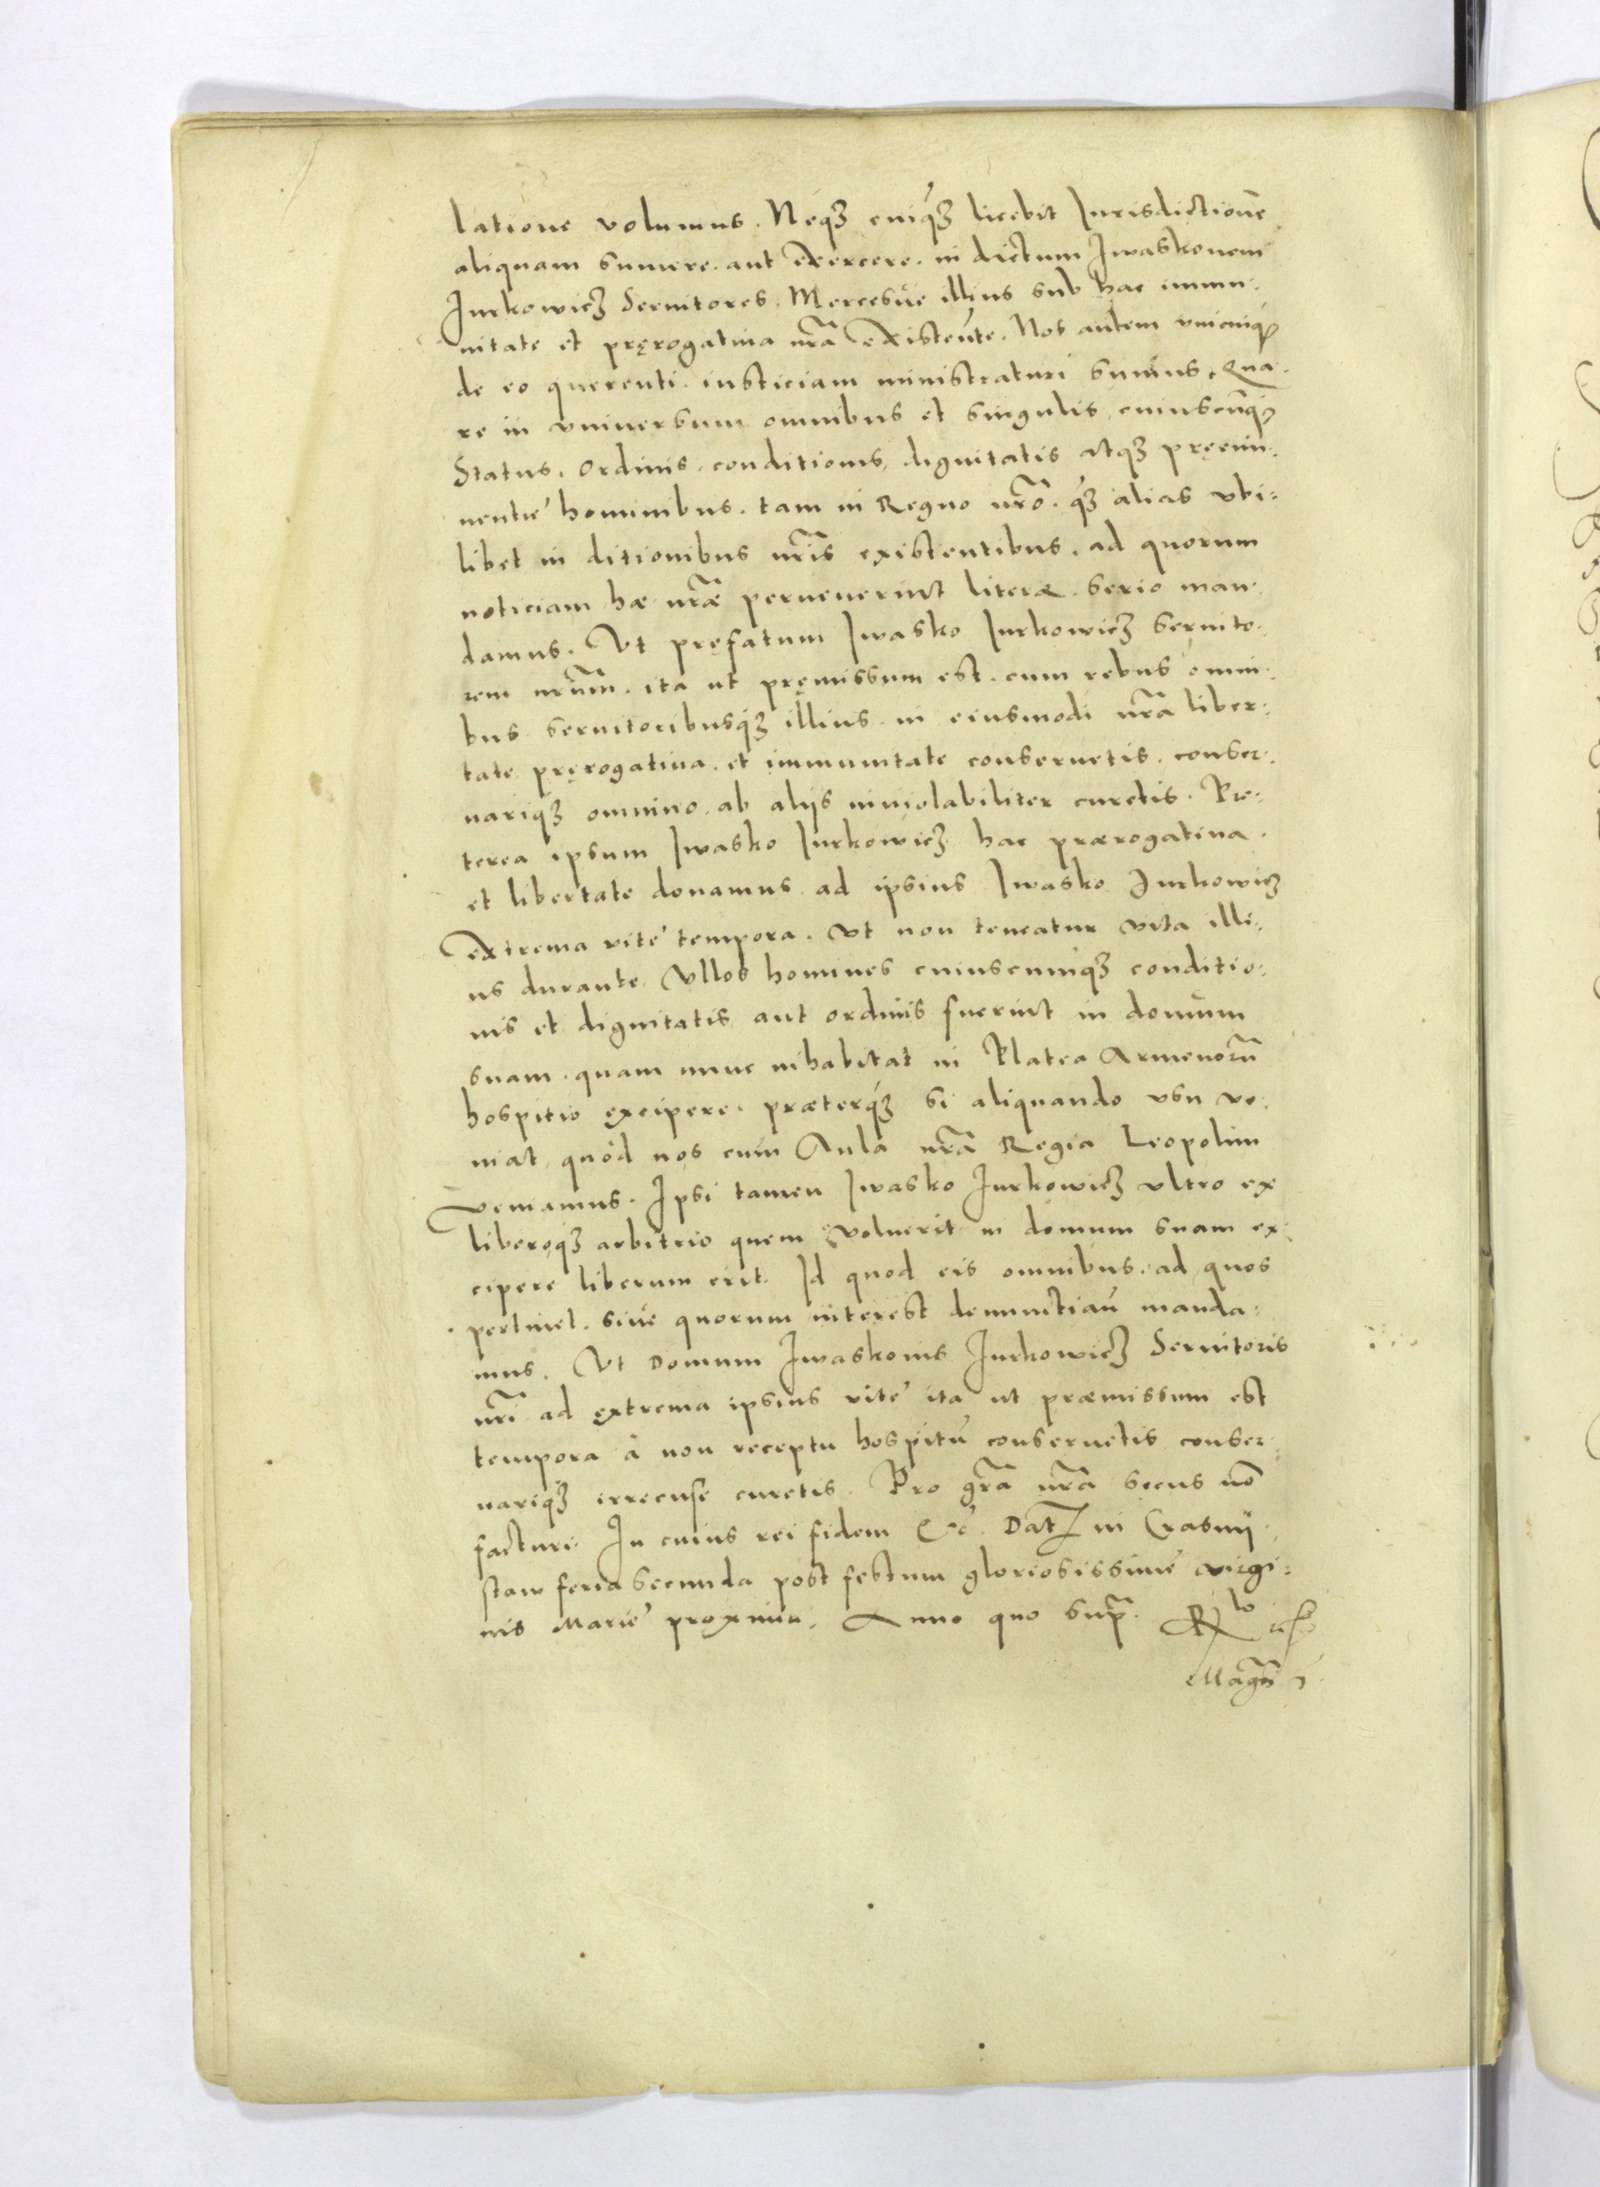 latione volumus. Neqꝫ cuiqꝫ licebit Iurisdictionē
aliquam sumere. aut exercere. in dictum Iwaskonem
Iurkowicz Seruitores. Mercesuè illius sub hac immu-
nitate et pręrogatiua nr̃a existentē. Nos autem vnicuiqꝫ
de eo querenti. iusticiam ministraturi sumus. Qua-
re in vniuersum omnibus et singulis, cuiuscunqꝫ
Status. Ordinis. conditionis, dignitatis atqꝫ pręemi-
nentię hominibus. tam in Regno nr̃o. qꝫ alias vbi-
libet in ditionibus nr̃is existentibus. ad quorum
noticiam hæ nr̃æ peruenerint literæ. serio man-
damus. Vt pręfatum Iwasko Iurkowicz seruito-
rem nr̃um. ita ut pręmissum est. cum rebus omni-
bus seruitoribusqꝫ illius. in eiusmodi nr̃a liber-
tate pręrogatiua. et immunitate conseruetis. conser-
uariqꝫ omnino. ab alijs inuiolabiliter curetis. Pre-
terea ipsum Iwasko Iurkowicz hac prærogatiua.
et libertate donamus. ad ipsius Iwasko Iurkowicz
extrema vitę tempora. Vt non teneatur vita illi-
us durante. Vllos homines cuiuscunqꝫ conditio-
nis et dignitatis aut ordinis fuerint in domum
suam. quam nunc inhabitat in Platea Armenorũ
hospitio excipere. præterqꝫ si aliquando vsu ve-
niat, quòd nos cum Aula nr̃a Regia Leopolim
veniamus. Ipsi tamen Iwasko Iurkowicz vltro ex
liberoqꝫ arbitrio quem voluerit in domum suam ex-
cipere liberum erit. Id quod eis omnibus. ad quos
pertinet. siuè quorum interest denunctiaũ manda-
mus. Vt Domum Iwaskonis Iurkowicz Seruitoris
nr̃i ad extrema ipsius vitę ita ut præmissum est
tempora à non receptu hospitũ conseruetis conser-
uariqꝫ curetis. Pro gr̃a nr̃a secus nõ
facturi. In cuius rei fidem &c̃. Dat in Crasnij
staw feria secunda post festum gloriosissimę virgi-
nis Marię proxima. Anno quo supr̃.